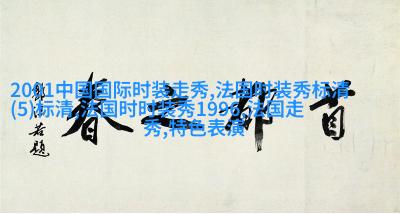 2011中国国际时装走秀,法国时装秀标清
(5)标清,法国时时装秀1996,法国走
秀,特色表演
首都之春
郭沫若題